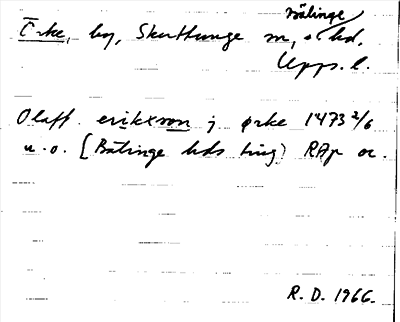 Bälinge
Örke, by, Skuttunge sn, o hd,
Upps. l.
Olaff erikxson j ørke 1473 2/6
u.o. (Bälinge hds ting) RAp or.
R. D. 1966.